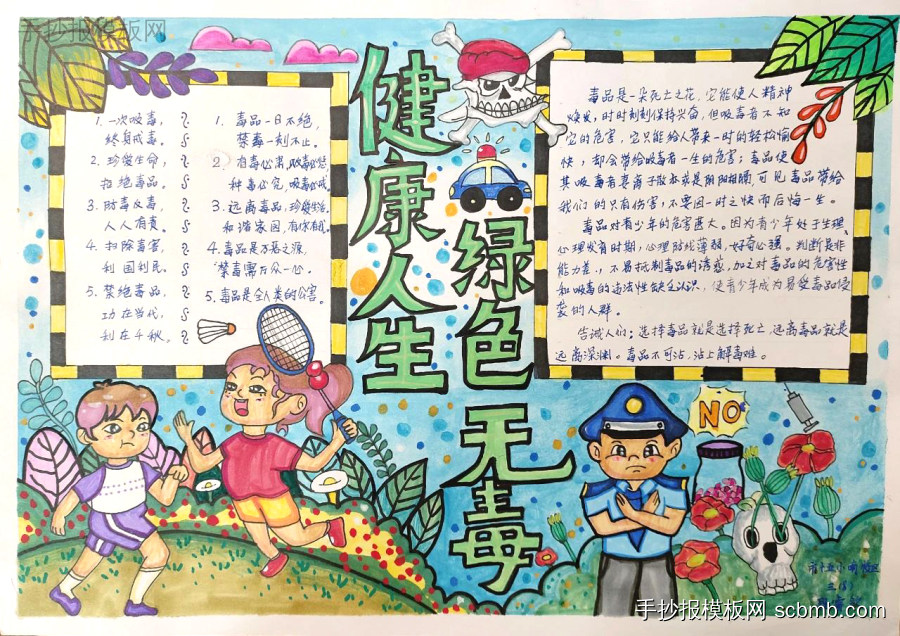 手抄报模板网
健康人生
绿色
无毒
1. 一次吸毒,
终身戒毒。
2. 珍爱生命,
拒绝毒品。
3. 防毒反毒,
人人有责。
4. 扫除毒害,
利国利民。
5. 禁绝毒品,
功在当代,
利在千秋,
1. 毒品一日不绝,
禁毒一刻不止。
2. 有毒必肃,
种毒必究,
3. 远离毒品,珍爱生活。
和谐家园,有你有我。
4. 毒品是万恶之源,
禁毒需万众一心。
5. 毒品是全人类的公害。
毒品是一朵死亡之花,它能使人精神
焕发,时时刻刻保持兴奋,但吸毒者不知
它的危害,它只能给人带来一时的轻松愉
快,却会带给吸毒者一生的危害;毒品使
其吸毒者妻离子散本或是阴阳相隔,可见毒品带给
我们的只有伤害,不要因一时之快而后悔一生。
毒品对青少年的危害甚大。因为青少年处于生理、
心理发育时期,心理防线薄弱、好奇心强。判断是非
能力差,不易抵制毒品的诱惑,加之对毒品的危害性
和吸毒的违法性缺乏认识,使青少年成为易受毒品侵
袭的人群。
告诫人们:选择毒品就是选择死亡,远离毒品就是
远离深渊。毒品不可沾,沾上解毒难。
NO
手抄报模板网 scbmb.com